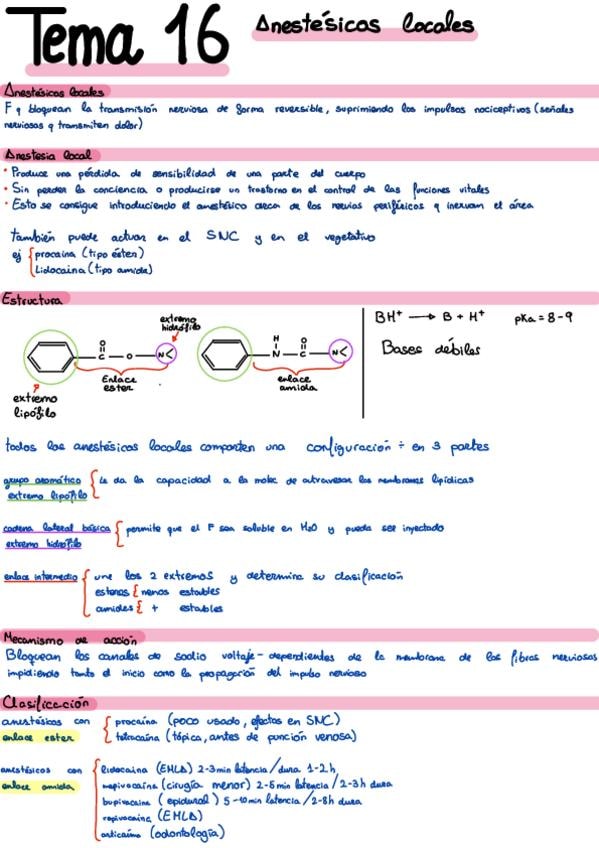 Tema 16 Anestésicos locales
Anestésicos locales
F q bloquean la transmisión nerviosa de forma reversible, suprimiendo los impulsos nociceptivos (señales
nerviosas q transmiten dolor)
Anestesia local
• Produce una pérdida de sensibilidad de una parte del cuerpo
• Sin perder la conciencia o producirse un trastorno en el control de las funciones vitales
• Esto se consigue introduciendo el anestésico cerca de los nervios periféricos q inervan el área
También puede actuar en el SNC y en el vegetativo
ej { procaína (tipo éster)
Lidocaína (tipo amida)
Estructura
extremo
hidrófilo
O
C O N
Enlace
ester
extremo
lipófilo
H O
N C N
enlace
amida
BH⁺ → B + H⁺ pKa = 8-9
Bases débiles
todos los anestésicos locales comparten una configuración ÷ en 3 partes
grupo aromático { le da la capacidad a la molec de atravesar las membranas lipídicas
extremo lipófilo
cadena lateral básica { permite que el F sea soluble en H₂O y pueda ser inyectado
extremo hidrófilo
enlace intermedio { une los 2 extremos y determina su clasificación
esteres { menos estables
amides { + estables
Mecanismo de acción
Bloquean los canales de sodio voltaje-dependientes de la membrana de las fibras nerviosas
impidiendo tanto el inicio como la propagación del impulso nervioso
Clasificación
anestésicos con { procaína (poco usado, efectos en SNC)
enlace ester tetracaína (tópica, antes de punción venosa)
anestésicos con { lidocaína (EMLA) 2-3 min latencia / dura 1-2 h
enlace amida mepivacaína (cirugía menor) 2-5 min latencia / 2-3 h dura
bupivacaína (epidural) 5-10 min latencia / 2-8 h dura
ropivacaína (EMLA)
articaína (odontología)